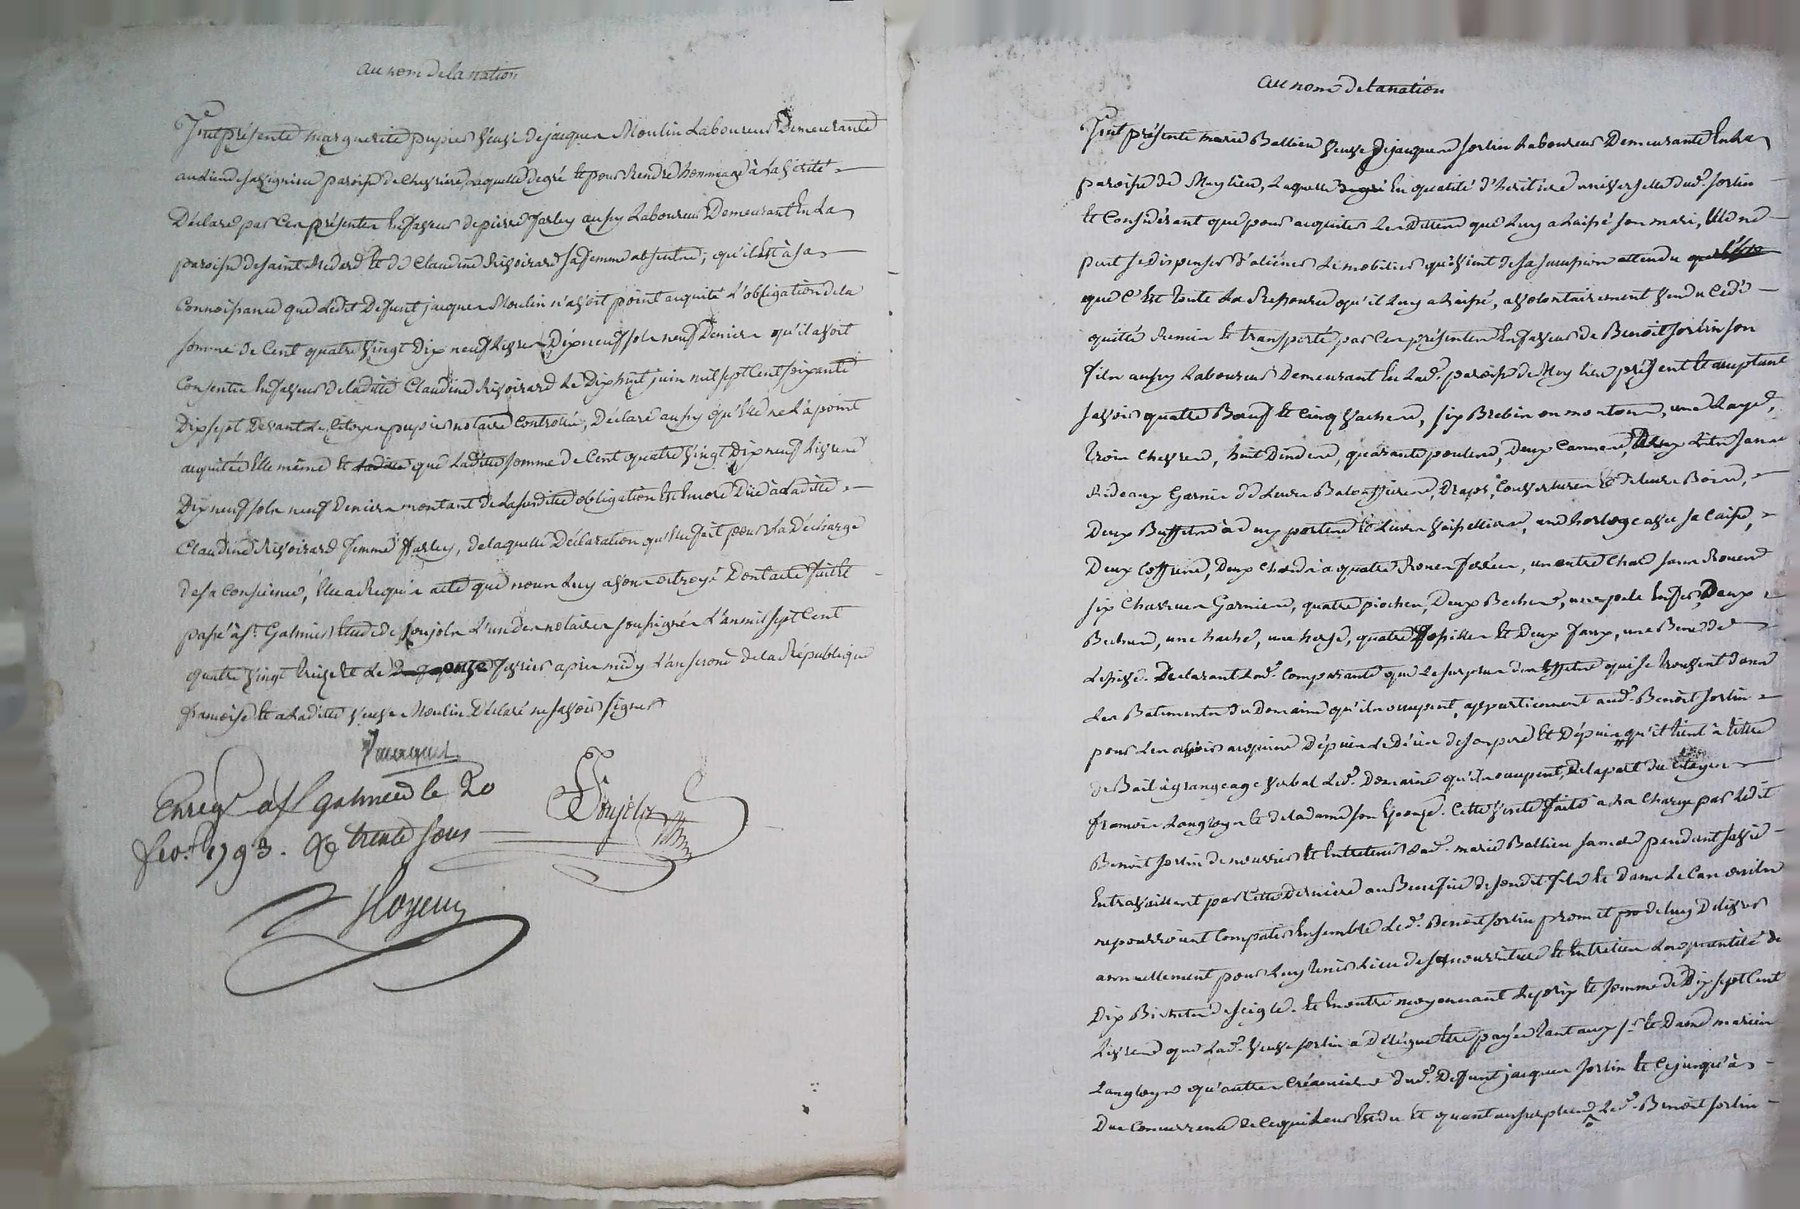 au nom de la nation
Fut présente marguerite pupier veuve de jacques Moulin Laboureur Demeurante
au lieu de savignieu paroisse de Chevrière, laquelle de gré et pour Rendre hommage à la vérité
Déclare par Ces présentes En faveur de pierre farley aussy Laboureur Demeurant En La
paroisse de saint Medard et de Claudine Rivoirard sa femme absentes; qu'il Est à sa
Connoissance que Ledit Deffunt jacques Moulin n'avoit point acquité L'obligation de la
somme de Cent quatre vingt Dix neuf Livres Dix neuf sols neuf Deniers qu'il avoit
Consentie En faveur de ladite Claudine Rivoirard Le Dix huit juin mil sept Cent soixante
Dix sept Devant Le Citoyen pupier notaire Controllée, Déclare aussy qu'Elle ne L'a point
acquitée Elle même et que Ladite somme de Cent quatre vingt Dix neuf Livres
Dix neuf sols neuf Deniers montant de La susdite obligation Est Encore Düe à Ladite
Claudine Rivoirard femme farley, de laquelle Déclaration qu'Elle fait pour La Décharge
de sa Conscience, Elle a Requis acte que nous Luy avons octroyé Dont acte fait et
passé à St. Galmier Etude de Poujols L'un des notaires soussignés L'an mil sept Cent
quatre vingt treize et Le onze fevrier après midy L'an second de la République
françoise et a Ladite veuve Moulin Déclaré ne savoir signer
Enregé à St galmier le 20
fevr. 1793. Re trente sous
au nom de la nation
Fut présente marie Ballieu veuve De jacques fortin Laboureur Demeurante En La
paroisse de Meylieu, Laquelle de gré En qualité d'heritiere universelle dud. fortin
et Considérant que pour acquiter Les Dettes que Luy a Laissé son mari, Elle ne
peut se dispenser d'aliéner Le mobilier qui vient de sa succession attendu
que C'Est toute La Ressource qu'il Luy a Laissé, a volontairement vendu Cédé
quitté Remis et transporté par Ces présentes En faveur de Benoit fortin son
fils aussy Laboureur Demeurant En Lad. paroisse de Meylieu présent et acceptant
savoir quatre Bœufs et Cinq vaches, six Brebis ou moutons, une
trois Chevres, huit Dindes, quarante poules, Deux Cannes, Deux Lits sans
Rideaux Garnis de Leurs Draps, Couvertures et de leurs Bois,
Deux Buffets à deux portes et Leurs vaisselliers, une horloge avec sa Caisse,
Deux Coffres, Deux Chards à quatre Roues ferrées, un autre Char sans Roues
six Charrues Garnies, quatre pioches, Deux Beches, une pele En fer, Deux
une hache, une herse, quatre et Deux faux, une Benne de
Lessive. Declarant Lad. Comparante que Le surplus des Effets qui se trouvent dans
Les Batiments du Domaine qu'ils occupent, appartiennent aud. Benoit fortin
pour Les avoir acquis Depuis Le Décès de son pere et Depuis qu'il tient à titre
de Bail à grangeage verbal Led. Domaine qu'ils occupent, De la part du Citoyen
françois Langlogne et de la dame son Epouse. Cette vente faite à La Charge par Ledit
Benoit fortin de nourrir et Entretenir Lad. marie Ballieu sa mere pendant sa vie
En travaillant par Cette Derniere au Benefice de sondit fils et Dans Le Cas où ils
ne pourroient Compatir Ensemble Led. Benoit fortin promet de luy Delivrer
annuellement pour Luy tenir Lieu de sa nourriture et Entretien La quantité de
Dix Bichets de seigle. et En outre moyennant Le prix et somme de Dix sept Cent
Livres que Lad. veuve fortin a Délégué Etre payée tant aux Sr. et Dame mariés
Langlogne qu'autres Créanciers dud. Deffunt jacques fortin et Ce jusqu'à
Due Concurrence de Ce qui Leur Est du et quant au surplus Led. Benoit fortin